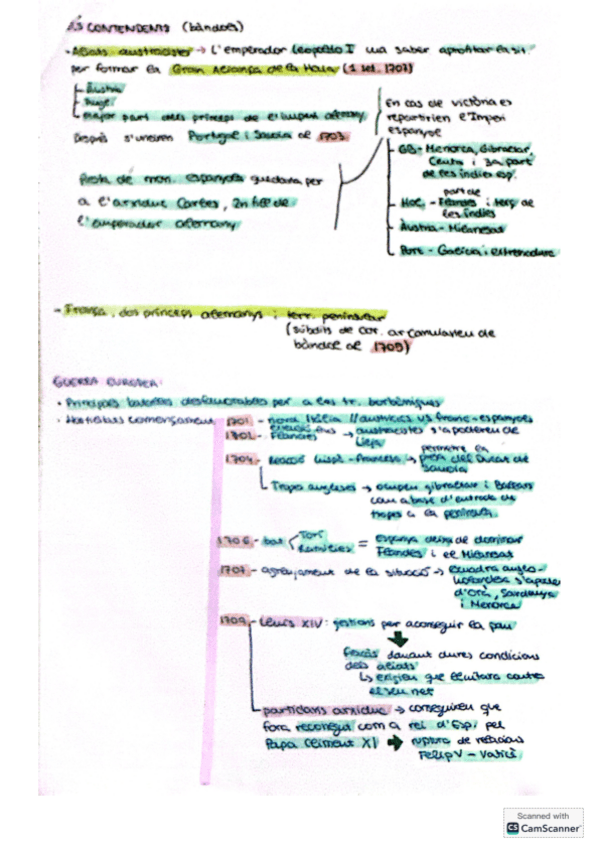 ELS CONTENDENTS (bàndols)
- Aliats austriacistes → L'emperador Leopold I va saber aprofitar la sit.
per formar la Gran Aliança de la Haia (1 set. 1701)
Àustria
major part dels prínceps de l'imperi alemany
Després s'uneixen Portugal i Savoia el 1703.
En cas de victòria es
repartirien l'Imperi
espanyol
GB - Menorca, Gibraltar,
Ceuta i 3a part
de les índies esp.
part de
Hol. - Flandes i terç de
les índies
Àustria - Milanesat
Port - Galícia i extremadura
Resta de mon. espanyola quedaria per
a l'arxiduc Carles, 2n fill de
l'emperador alemany
- França, dos prínceps alemanys i terr. peninsular
(súbdits de cor. ar. canviaran de
bàndol el 1705)
GUERRA EUROPEA:
· Principals batalles desfavorables per a les tr. borbòniques
· Hostilitats començament
1701 - nord Itàlia // austríacs vs franc-espanyoles
1702 - Flandes → austriacistes s'apoderen de
Lieja
1704 - Reacció hisp-francesa → permetre la
presa del Ducat de
Savoia
Tropes angleses → ocupen gibraltar i
com a base d'entrada de
tropes a la península
1706 - bat. Torí
Ramillies = espanya deixa de dominar
Flandes i el Milanesat
1707 - agreujament de la situació → esquadra anglo-
holandesa s'apodera
d'Orà, Sardenya
i Menorca
1709 - Lluís XIV: gestions per aconseguir la pau
fracàs davant dures condicions
dels aliats
↳ exigien que lluitara contra
el seu net
partidaris arxiduc → aconsegueixen que
fora reconegut com a rei d'Esp. pel
Papa Climent XI → ruptura de relacions
Felip V - Vaticà
Scanned with
CS CamScanner